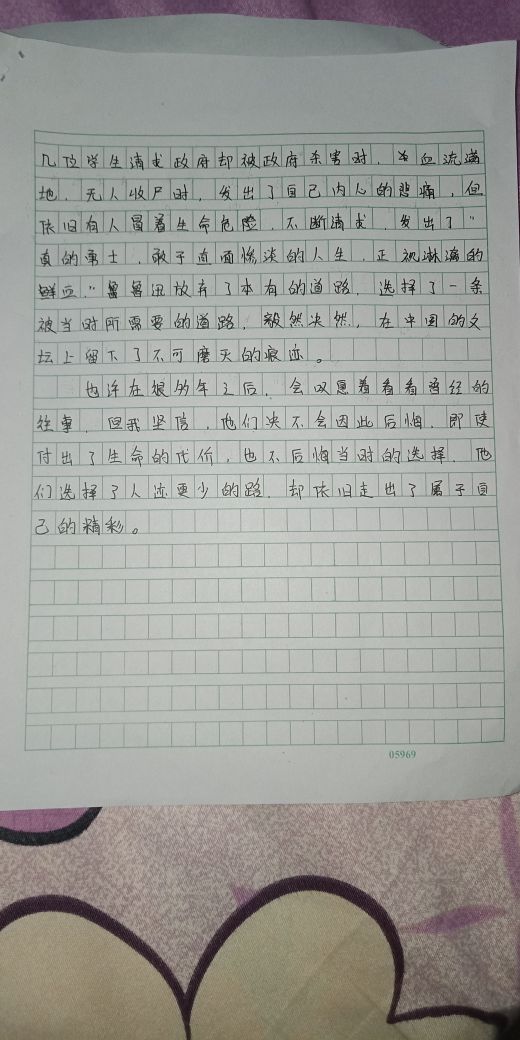 几位学生请求政府却被政府杀害时，血流满
地，无人收尸时，发出了自己内心的悲痛，但
依旧有人冒着生命危险，不断请求，发出了“
真的勇士，敢于直面惨淡的人生，正视淋漓的
鲜血”鲁迅放弃了本有的道路，选择了一条
被当时所需要的道路，毅然决然，在中国的文
坛上留下了不可磨灭的痕迹。
也许在很多年之后，会叹息着看看曾经的
往事，但我坚信，他们决不会因此后悔，即使
付出了生命的代价，也不后悔当时的选择，他
们选择了人迹更少的路，却依旧走出了属于自
己的精彩。
05969